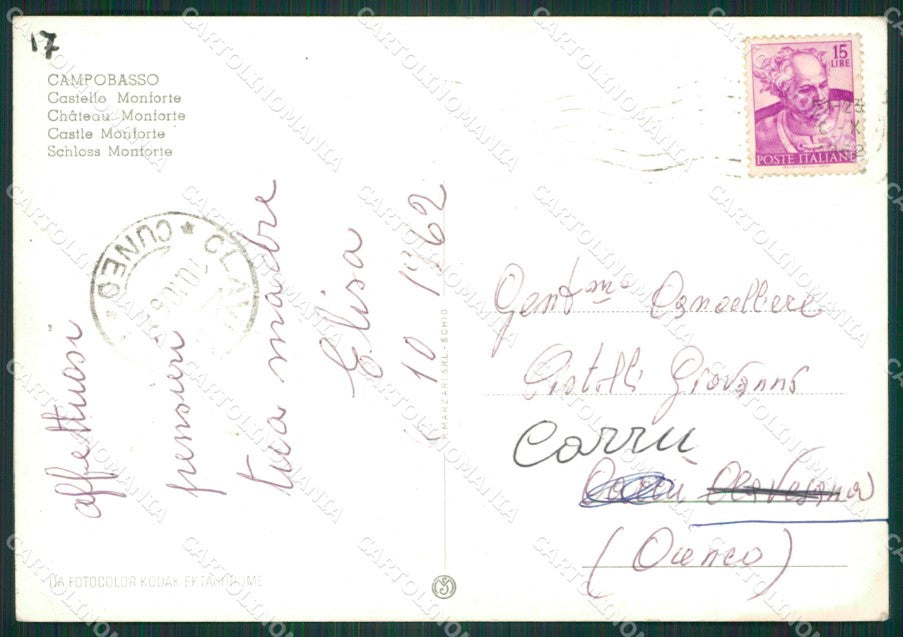 17
CAMPOBASSO
Castello Monforte
Château Monforte
Castle Monforte
Schloss Monforte
15
LIRE
POSTE ITALIANE
CUNEO
affettuosi
pensieri
tua madre
Elisa
MARZARI SRL - SCHIO
Gent.mo Cancelliere
Giovanni
Carrù
Carrù Clavesana
(Cuneo)
DA FOTOCOLOR KODAK EKTACHROME
CARTOLINOMANIA